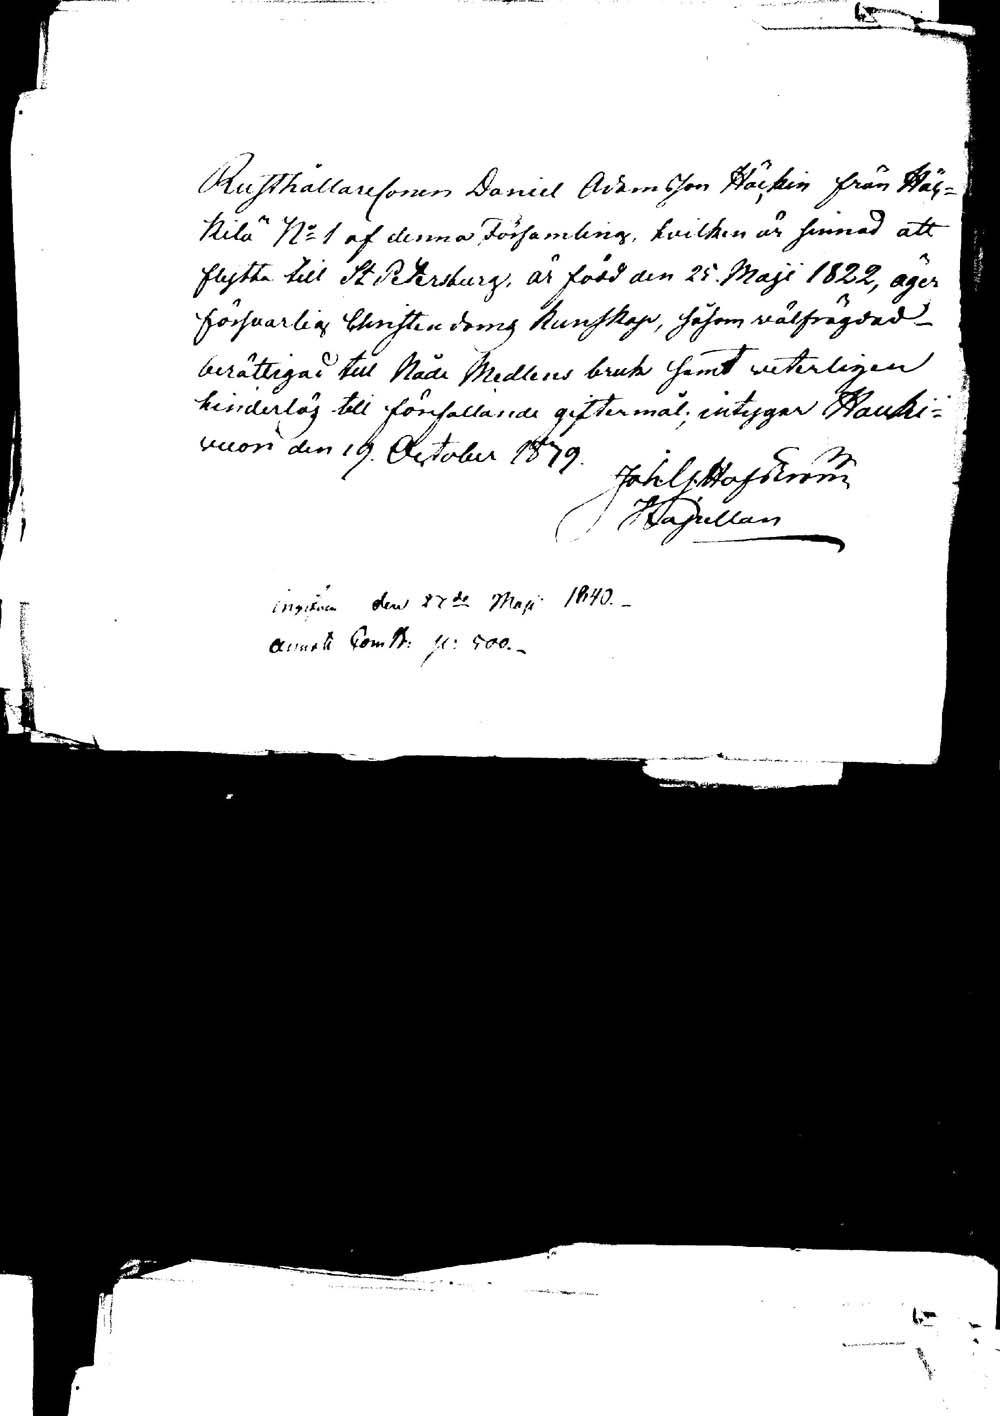 Rusthållaresonen Daniel Adamsson Häckin från Häc=
kilä No 1 af denna Församling, hvilken är sinnad att
flytta till St Petersburg, är född den 25. Maji 1822, äger
försvarlig Christendoms kunskap, såsom välfrägdad
berättigad till Nåde Medlens bruk samt veterligen
hinderlös till förefallande giftermål; intygar Hauki=
vuori den 19. October 1839.
Joh. G. Hofström
Kapellan
den 27de Maji 1840.
500.